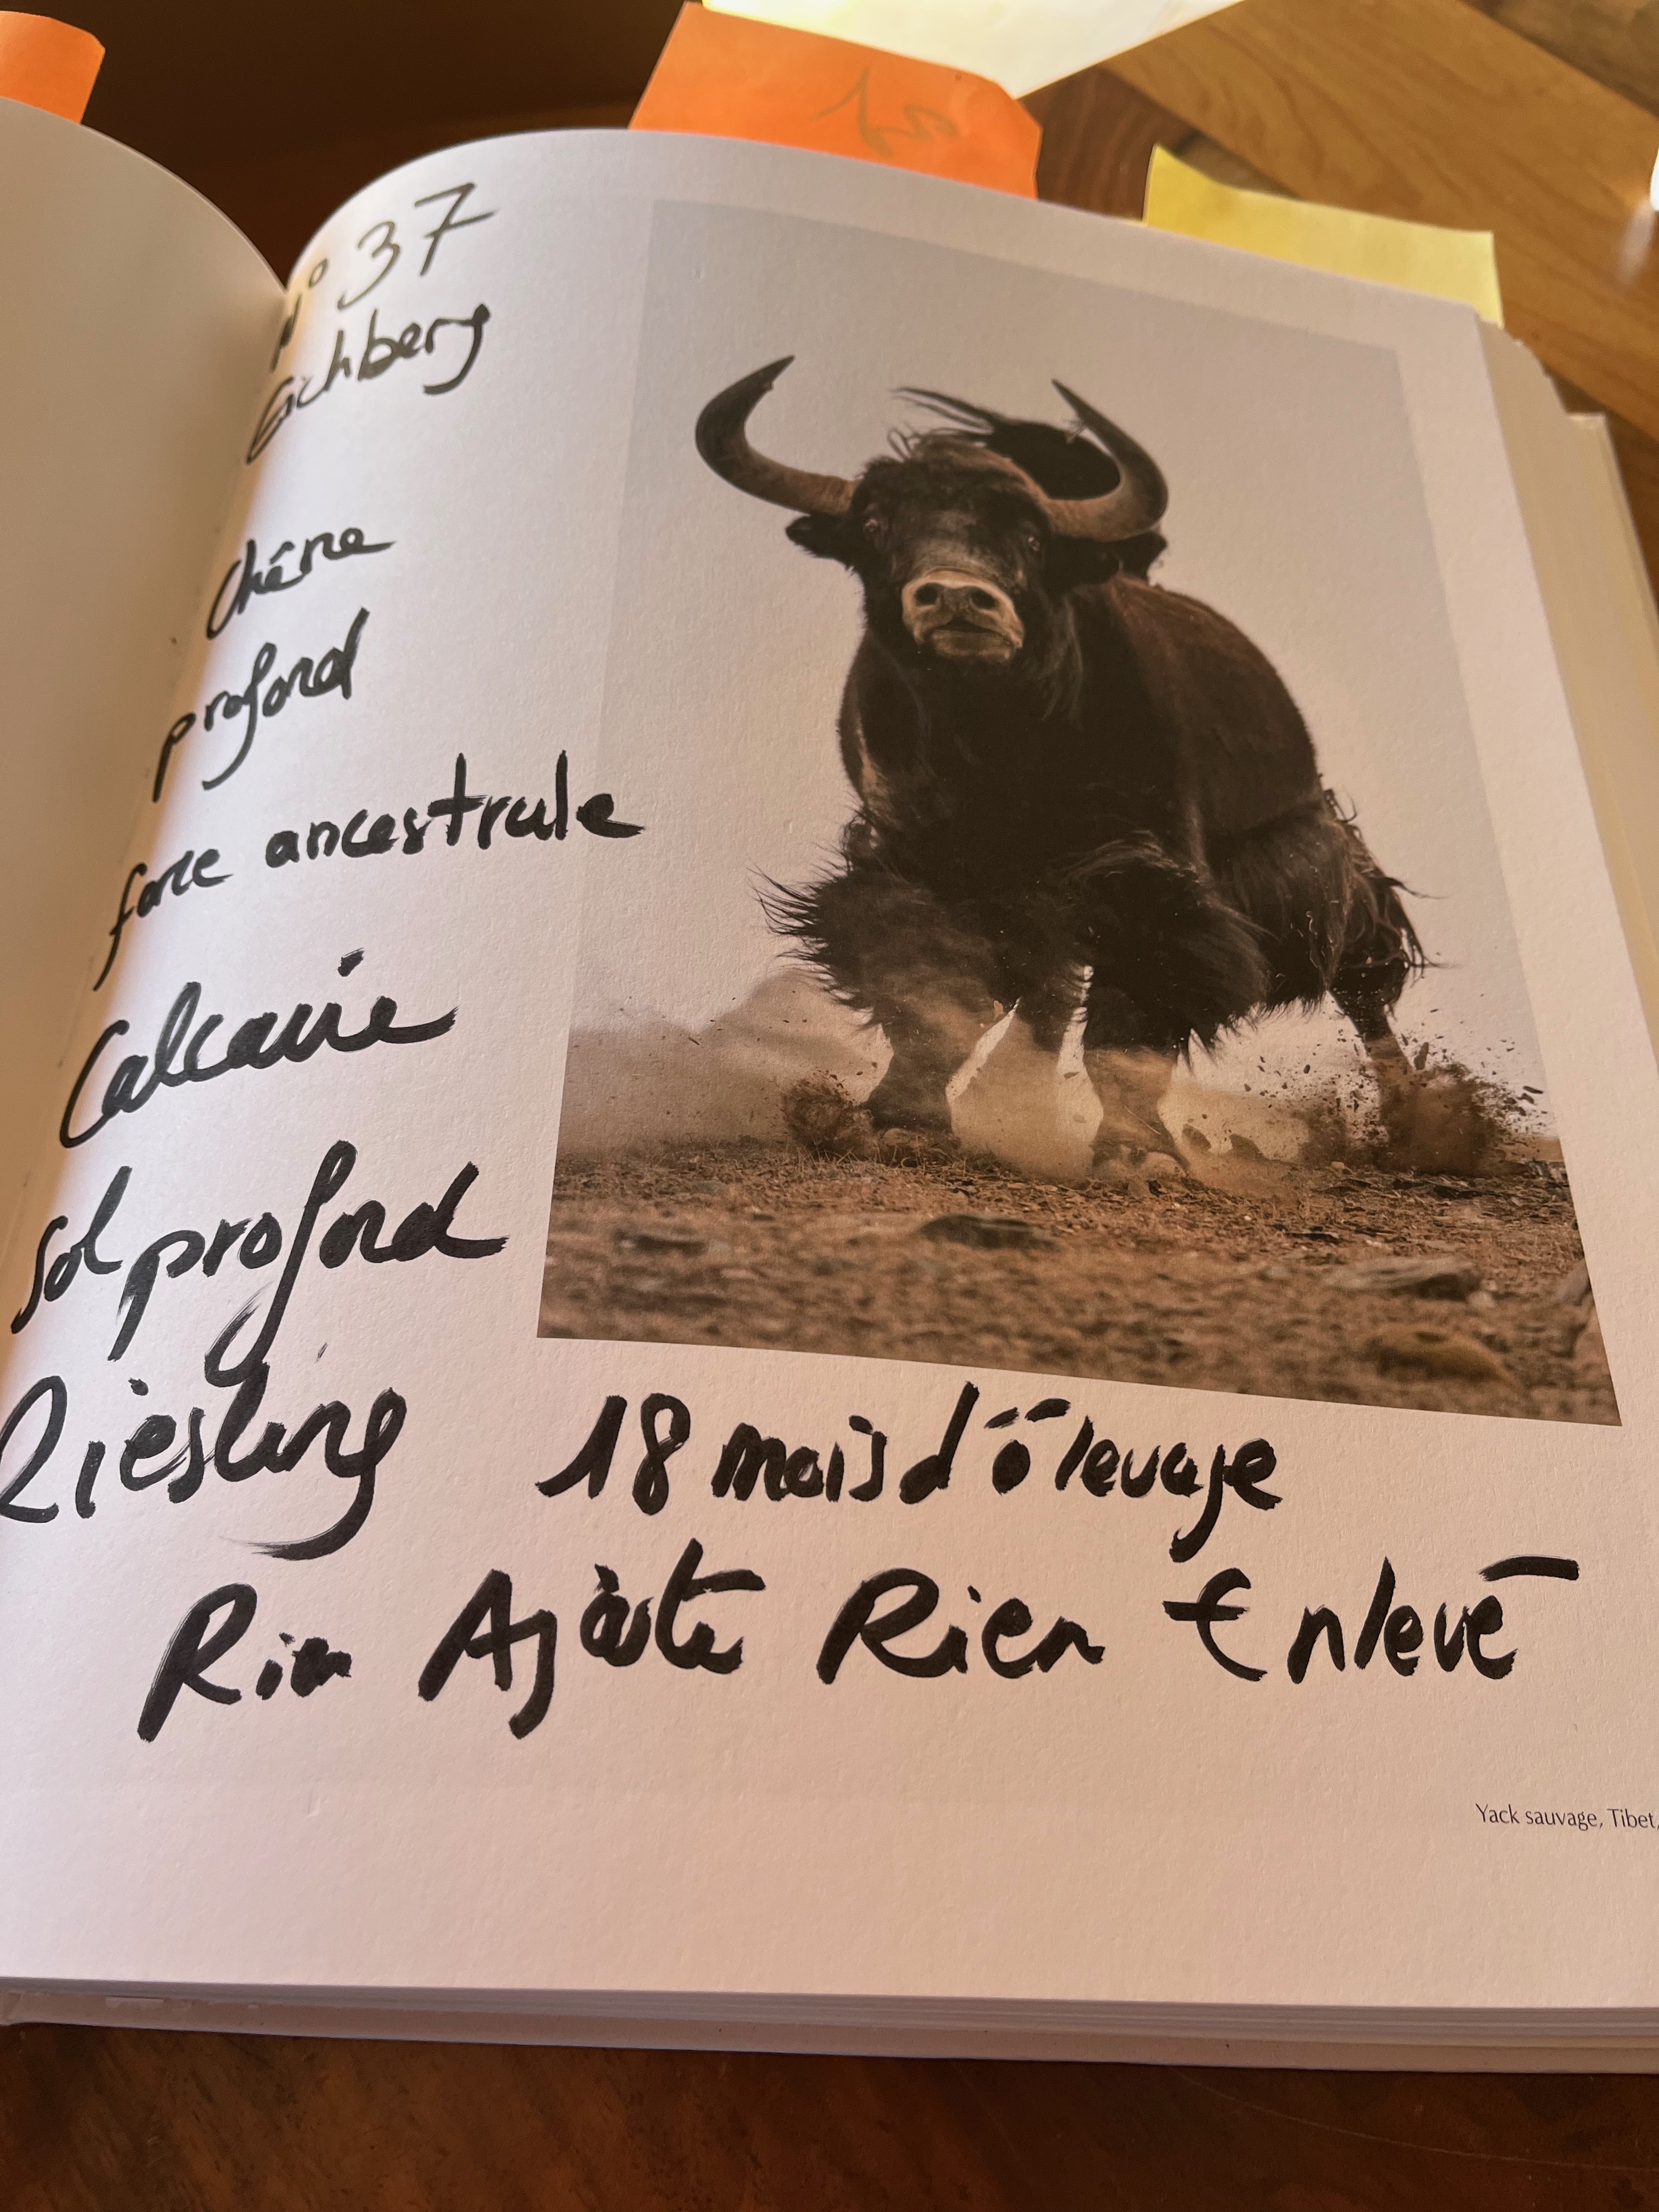 N° 37
Eichberg
Chêne
profond
force ancestrale
Calcaire
Sol profond
Riesling
18 mois d'élevage
Rien Ajouté Rien Enlevé
Yack sauvage, Tibet,